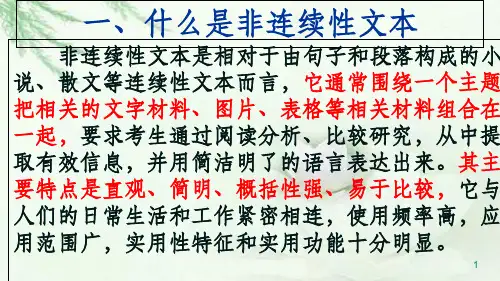 一、什么是非连续性文本
非连续性文本是相对于由句子和段落构成的小
说、散文等连续性文本而言，它通常围绕一个主题
把相关的文字材料、图片、表格等相关材料组合在
一起，要求考生通过阅读分析、比较研究，从中提
取有效信息，并用简洁明了的语言表达出来。其主
要特点是直观、简明、概括性强、易于比较，它与
人们的日常生活和工作紧密相连，使用频率高，应
用范围广，实用性特征和实用功能十分明显。
1